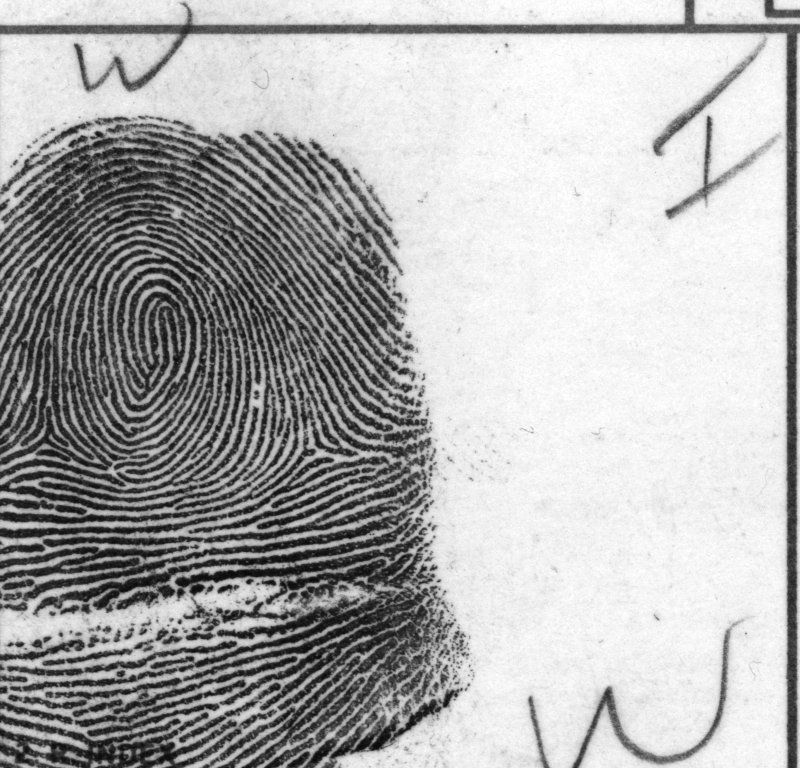 W
I
W
2. R. INDEX